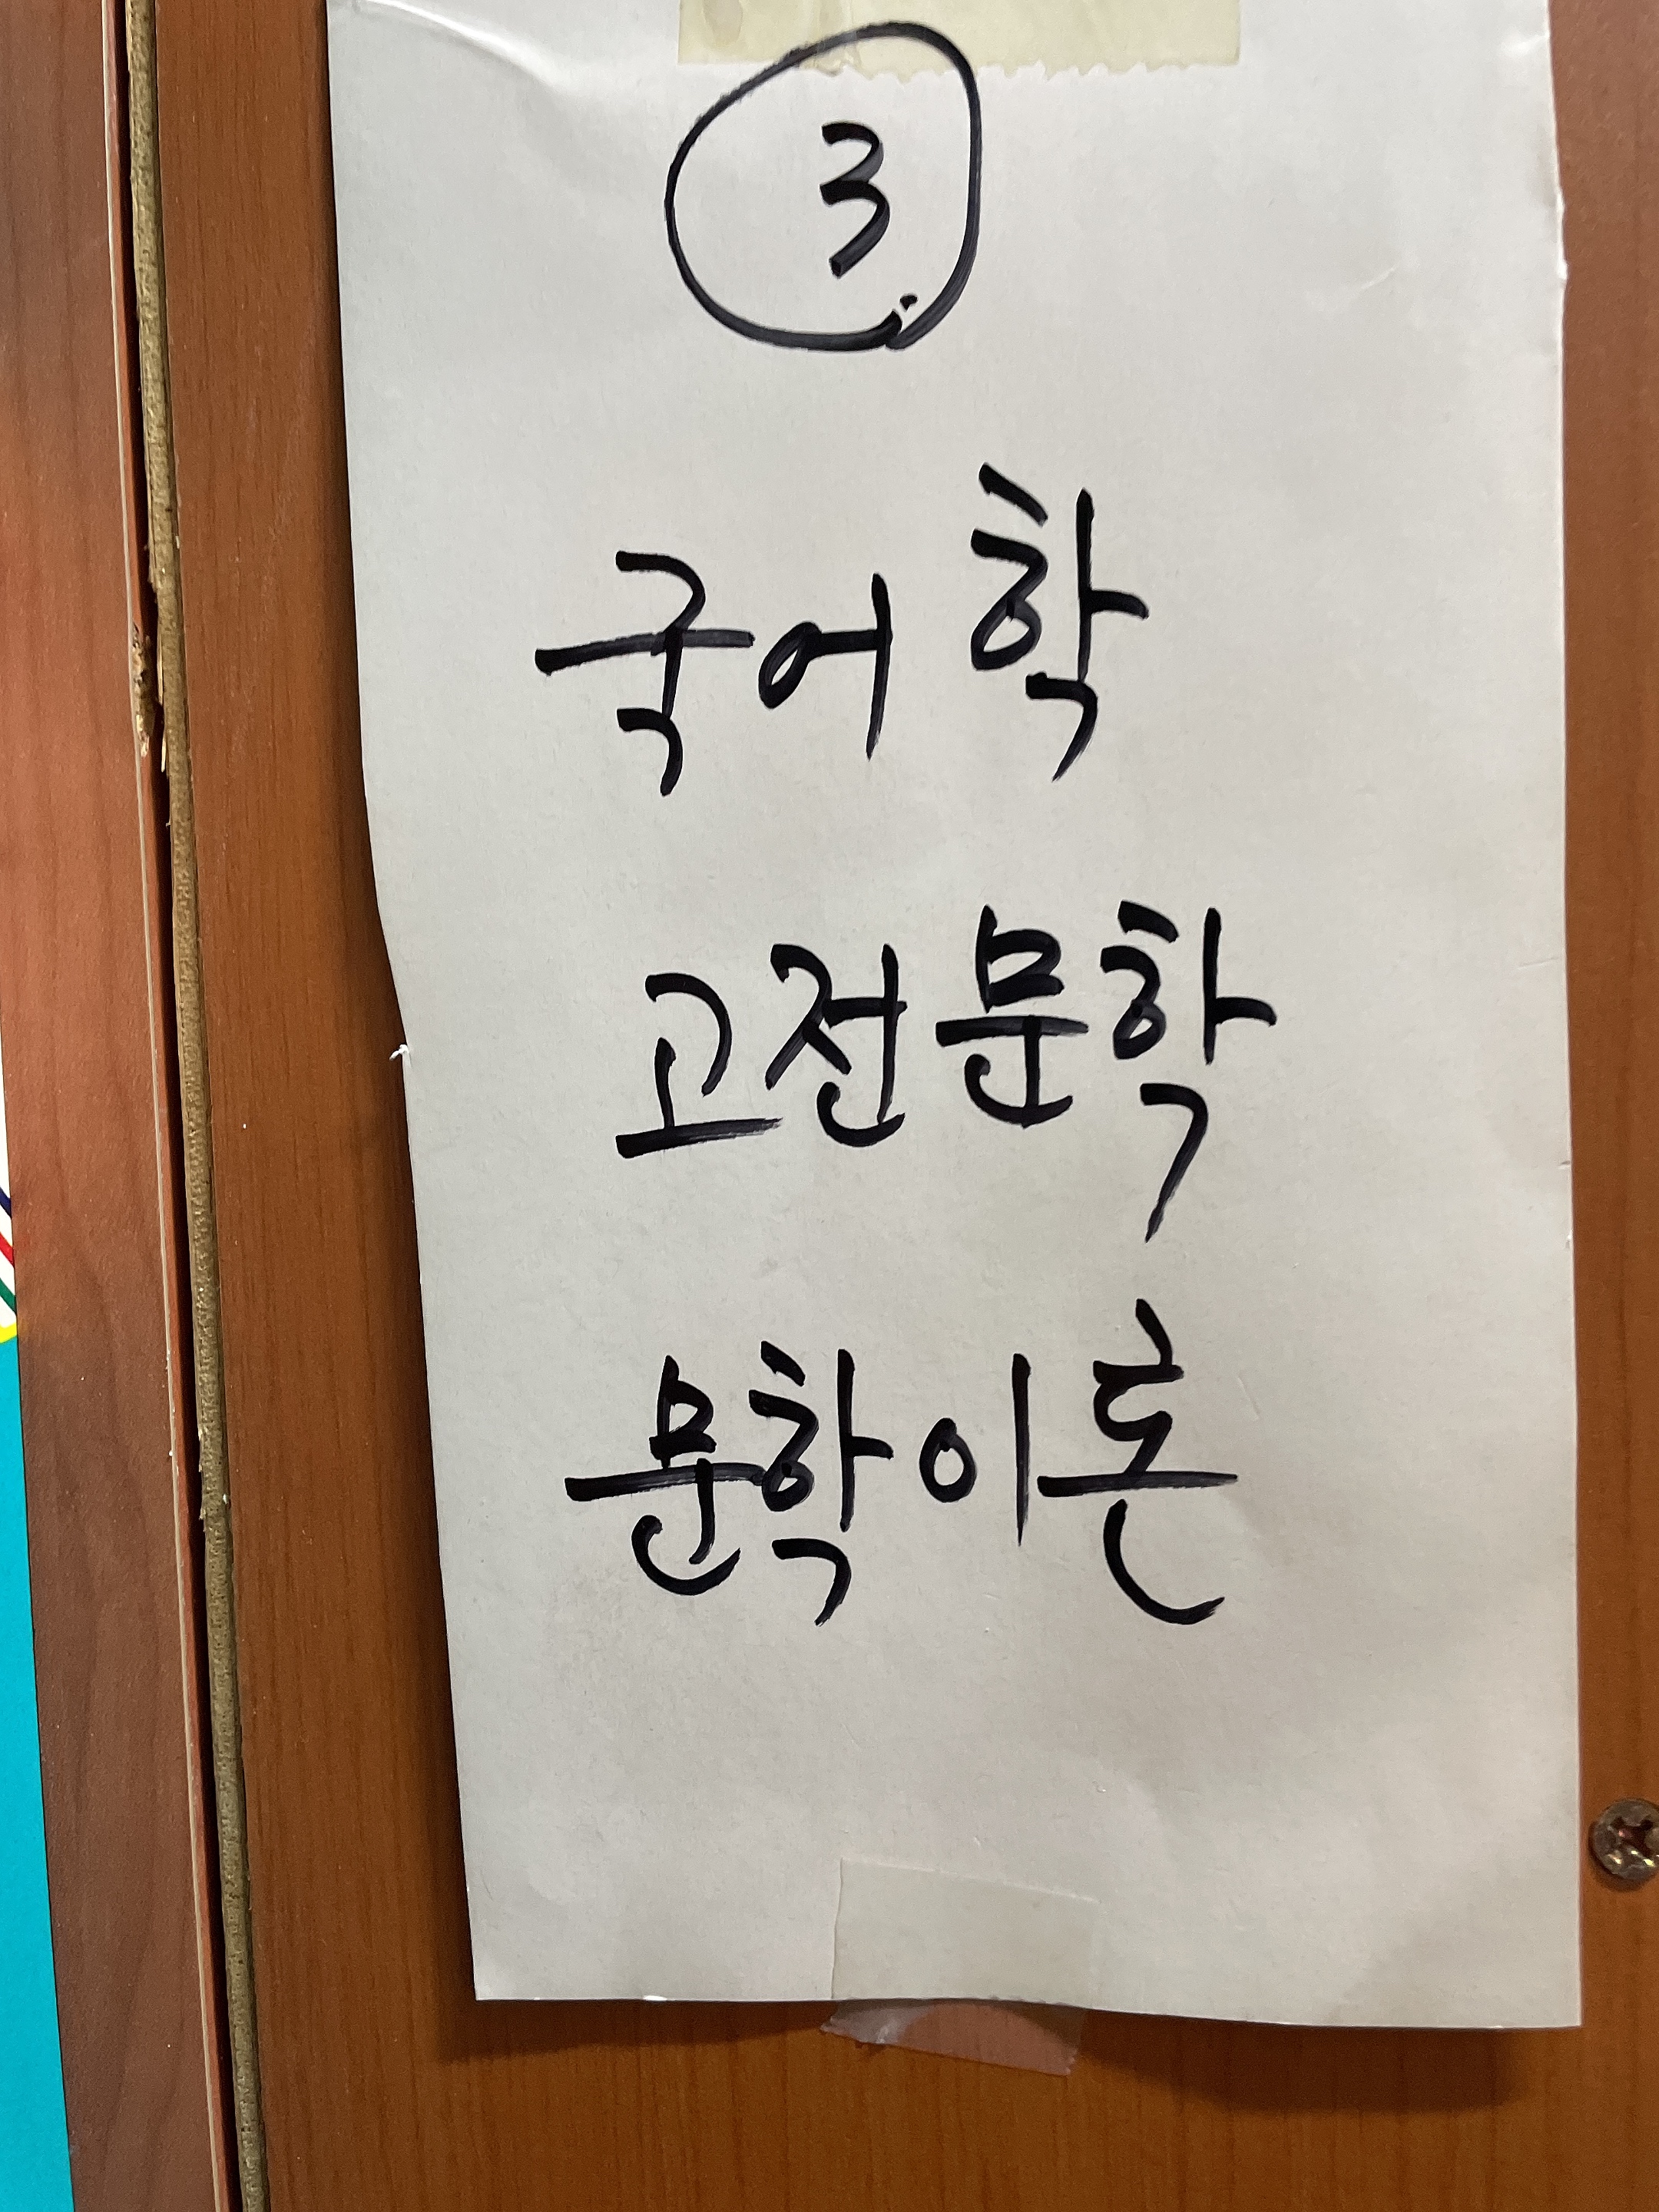 ③
국어학
고전문학
문학이론